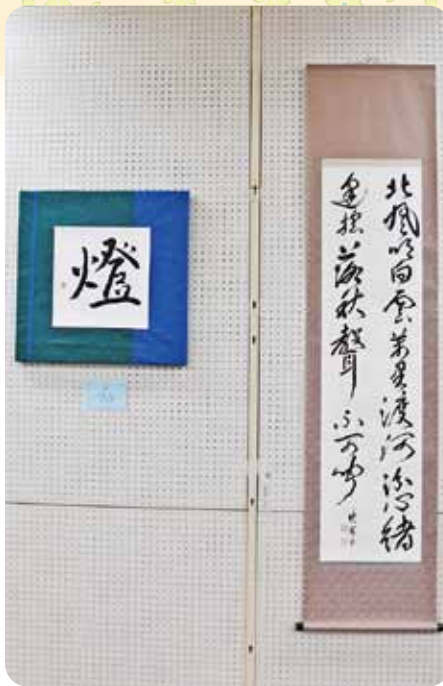 北風吹白雲萬里渡河汾心緒
逢搖落秋聲不可聞
燈